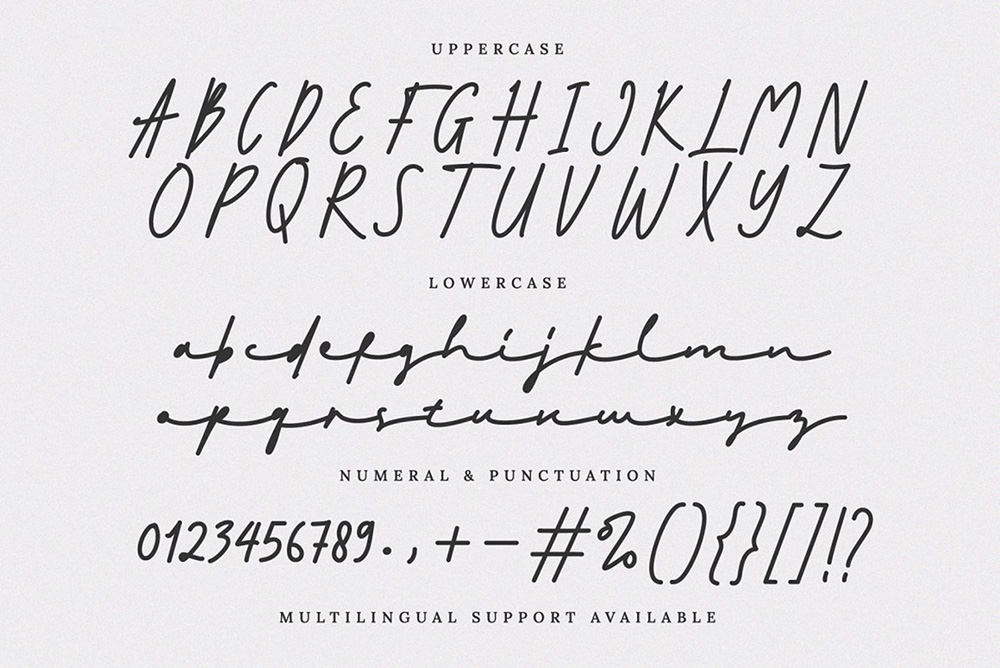 UPPERCASE
ABCDEFGHIJKLMN
OPQRSTUVWXYZ
LOWERCASE
abcdefghijklmn
opqrstuvwxyz
NUMERAL & PUNCTUATION
0123456789.,+-#%(){}[]!?
MULTILINGUAL SUPPORT AVAILABLE